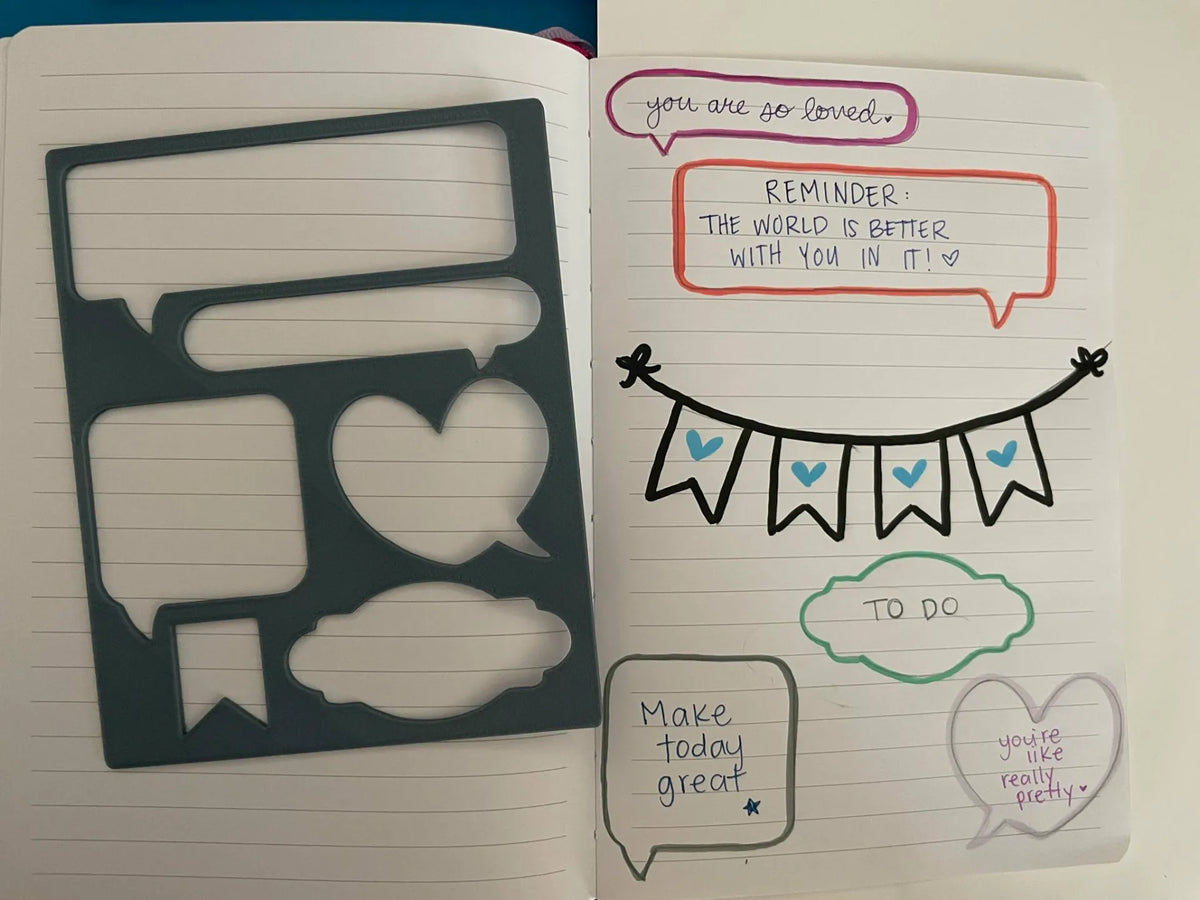 you are so loved.
REMINDER:
THE WORLD IS BETTER
WITH YOU IN IT!
TO DO
Make
today
great
you're
like
really
pretty